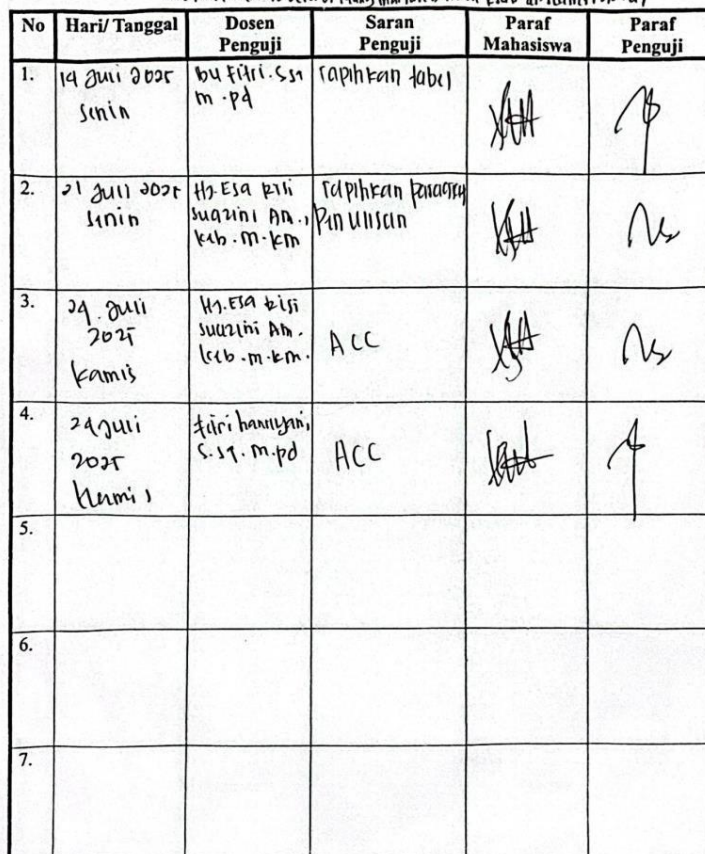 No Hari/ Tanggal Dosen Penguji Saran Penguji Paraf Mahasiswa Paraf Penguji
1. 14 Juli 2025 Senin bu Fitri. S.ST m.pd rapihkan tabel
2. 21 Juli 2025 Senin Hj. Esa Risi Suazini Am., keb.m.km rapihkan Penulisan
3. 24. Juli 2025 Kamis Hj. Esa Risi Suazini Am. keb.m.km. ACC
4. 24 Juli 2025 Kamis fitri S.ST. m.pd ACC
5.
6.
7.